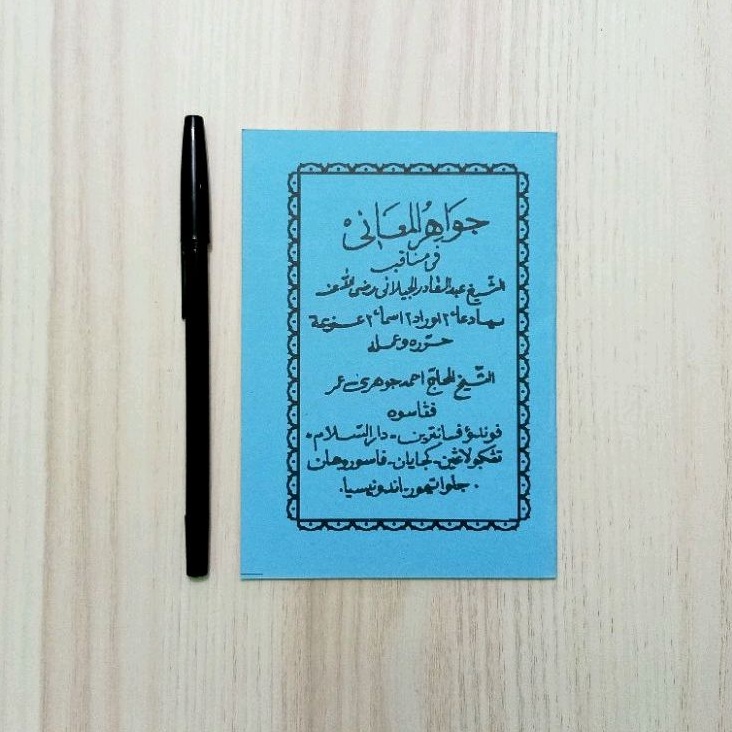 جَوَاهِرُ المَعَانِى
فى مناقب
الشّيخ عبد القادر الجيلانى رضى الله عنه
سرتا دعاء٢ اوراد٢ اسماء٢ عزيمة
حرّره وعمله
الشّيخ الحاجّ احمد جوهرى عمر
ڤڠاسوه
فوندؤ فسانترين - دار السّلام •
تڠكولاڠين - كجايان - فاسوروهان
• جاوا تيمور - اندونيسيا •